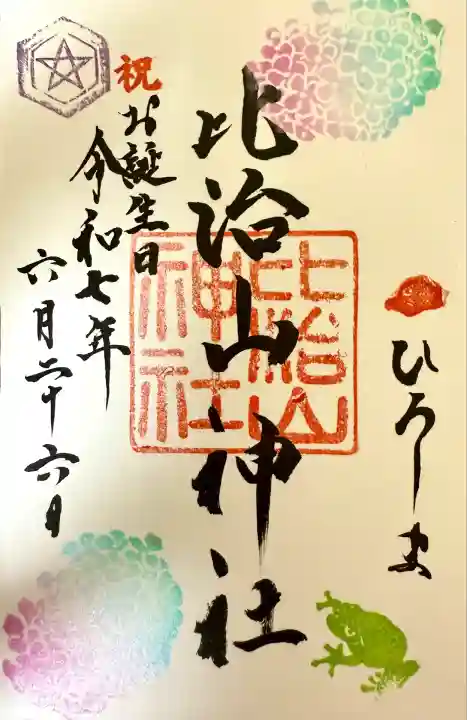 ひろしま
比治山神社
比治山
神社
祝
お誕生日
令和七年
六月二十六日